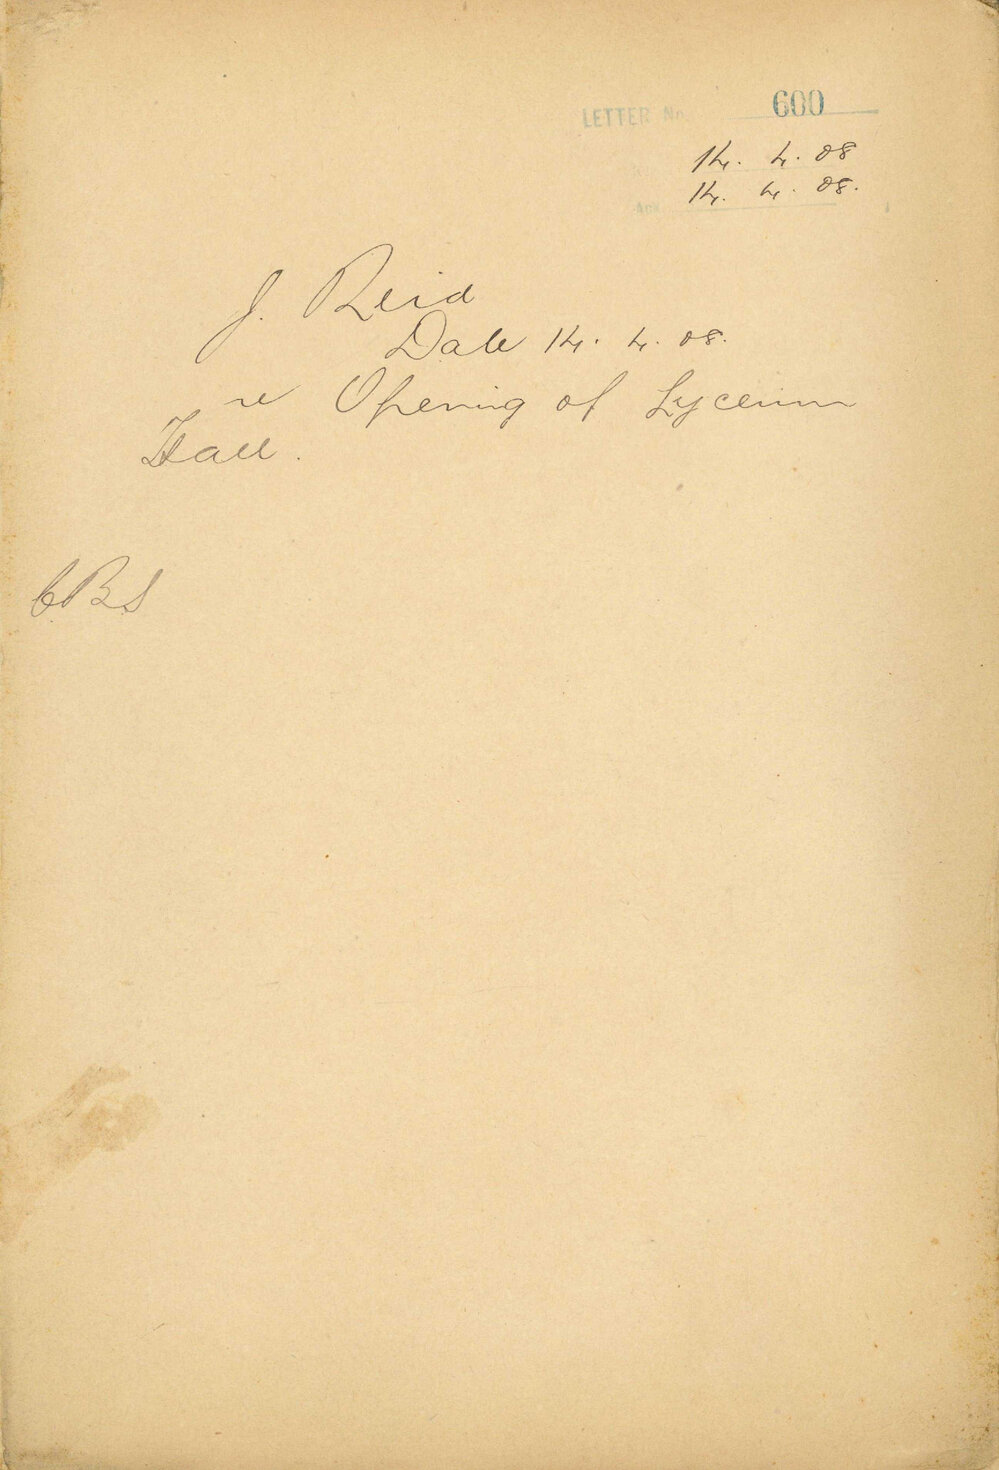 LETTER No. 600
14. 4. 08
Ack. 14. 4. 08.
J. Reid
Date 14. 4. 08.
re Opening of Lyceum
Hall.
CBS